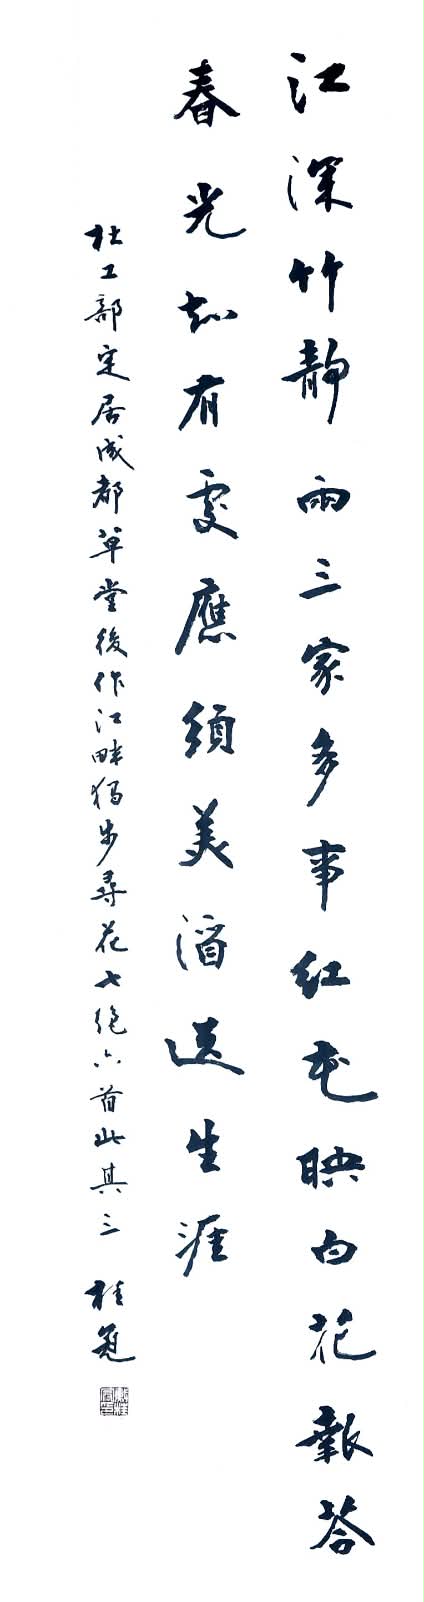 江深竹靜兩三家多事紅花映白花報答
春光知有處應須美酒送生涯
杜工部定居成都草堂後作江畔獨步尋花七絕六首此其三 桂冠